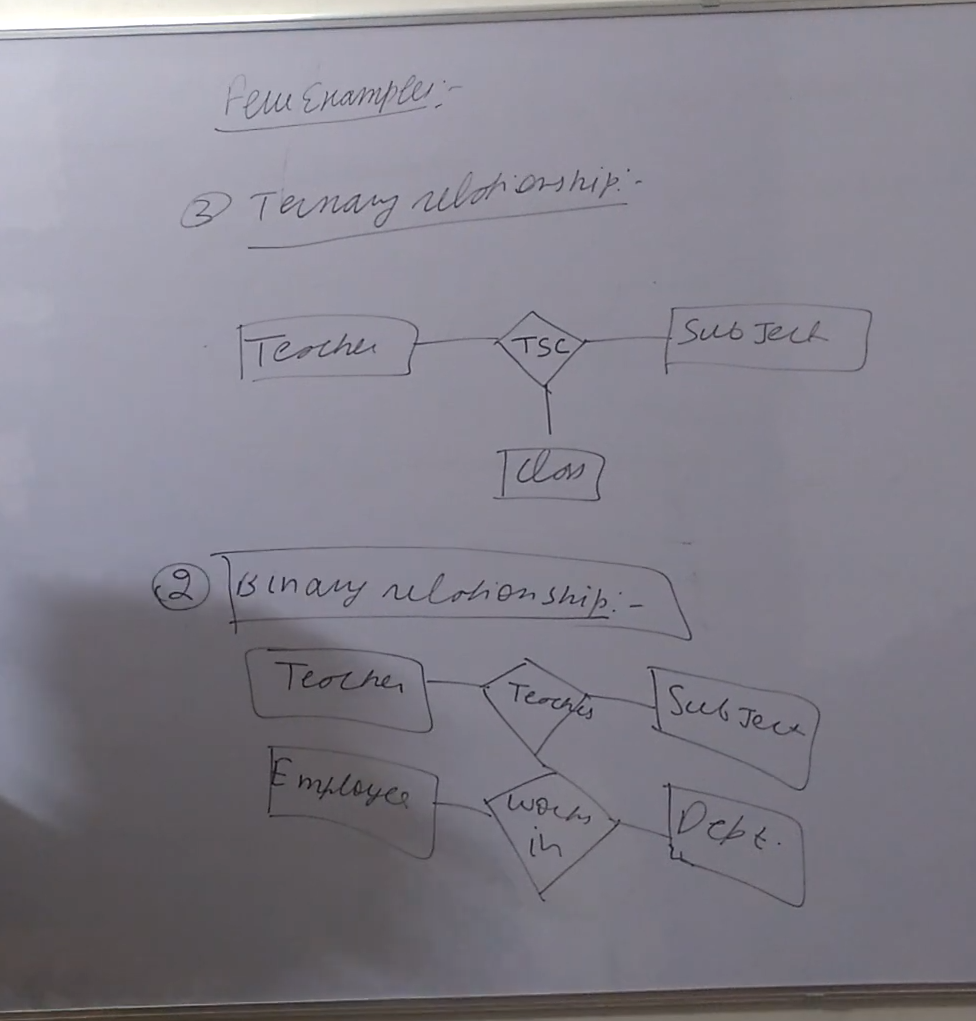 Few Examples:-
③ Ternary relationship:-
Teacher TSC Subject
Class
② Binary relationship:-
Teacher Teaches Subject
Employee Works in Dept.